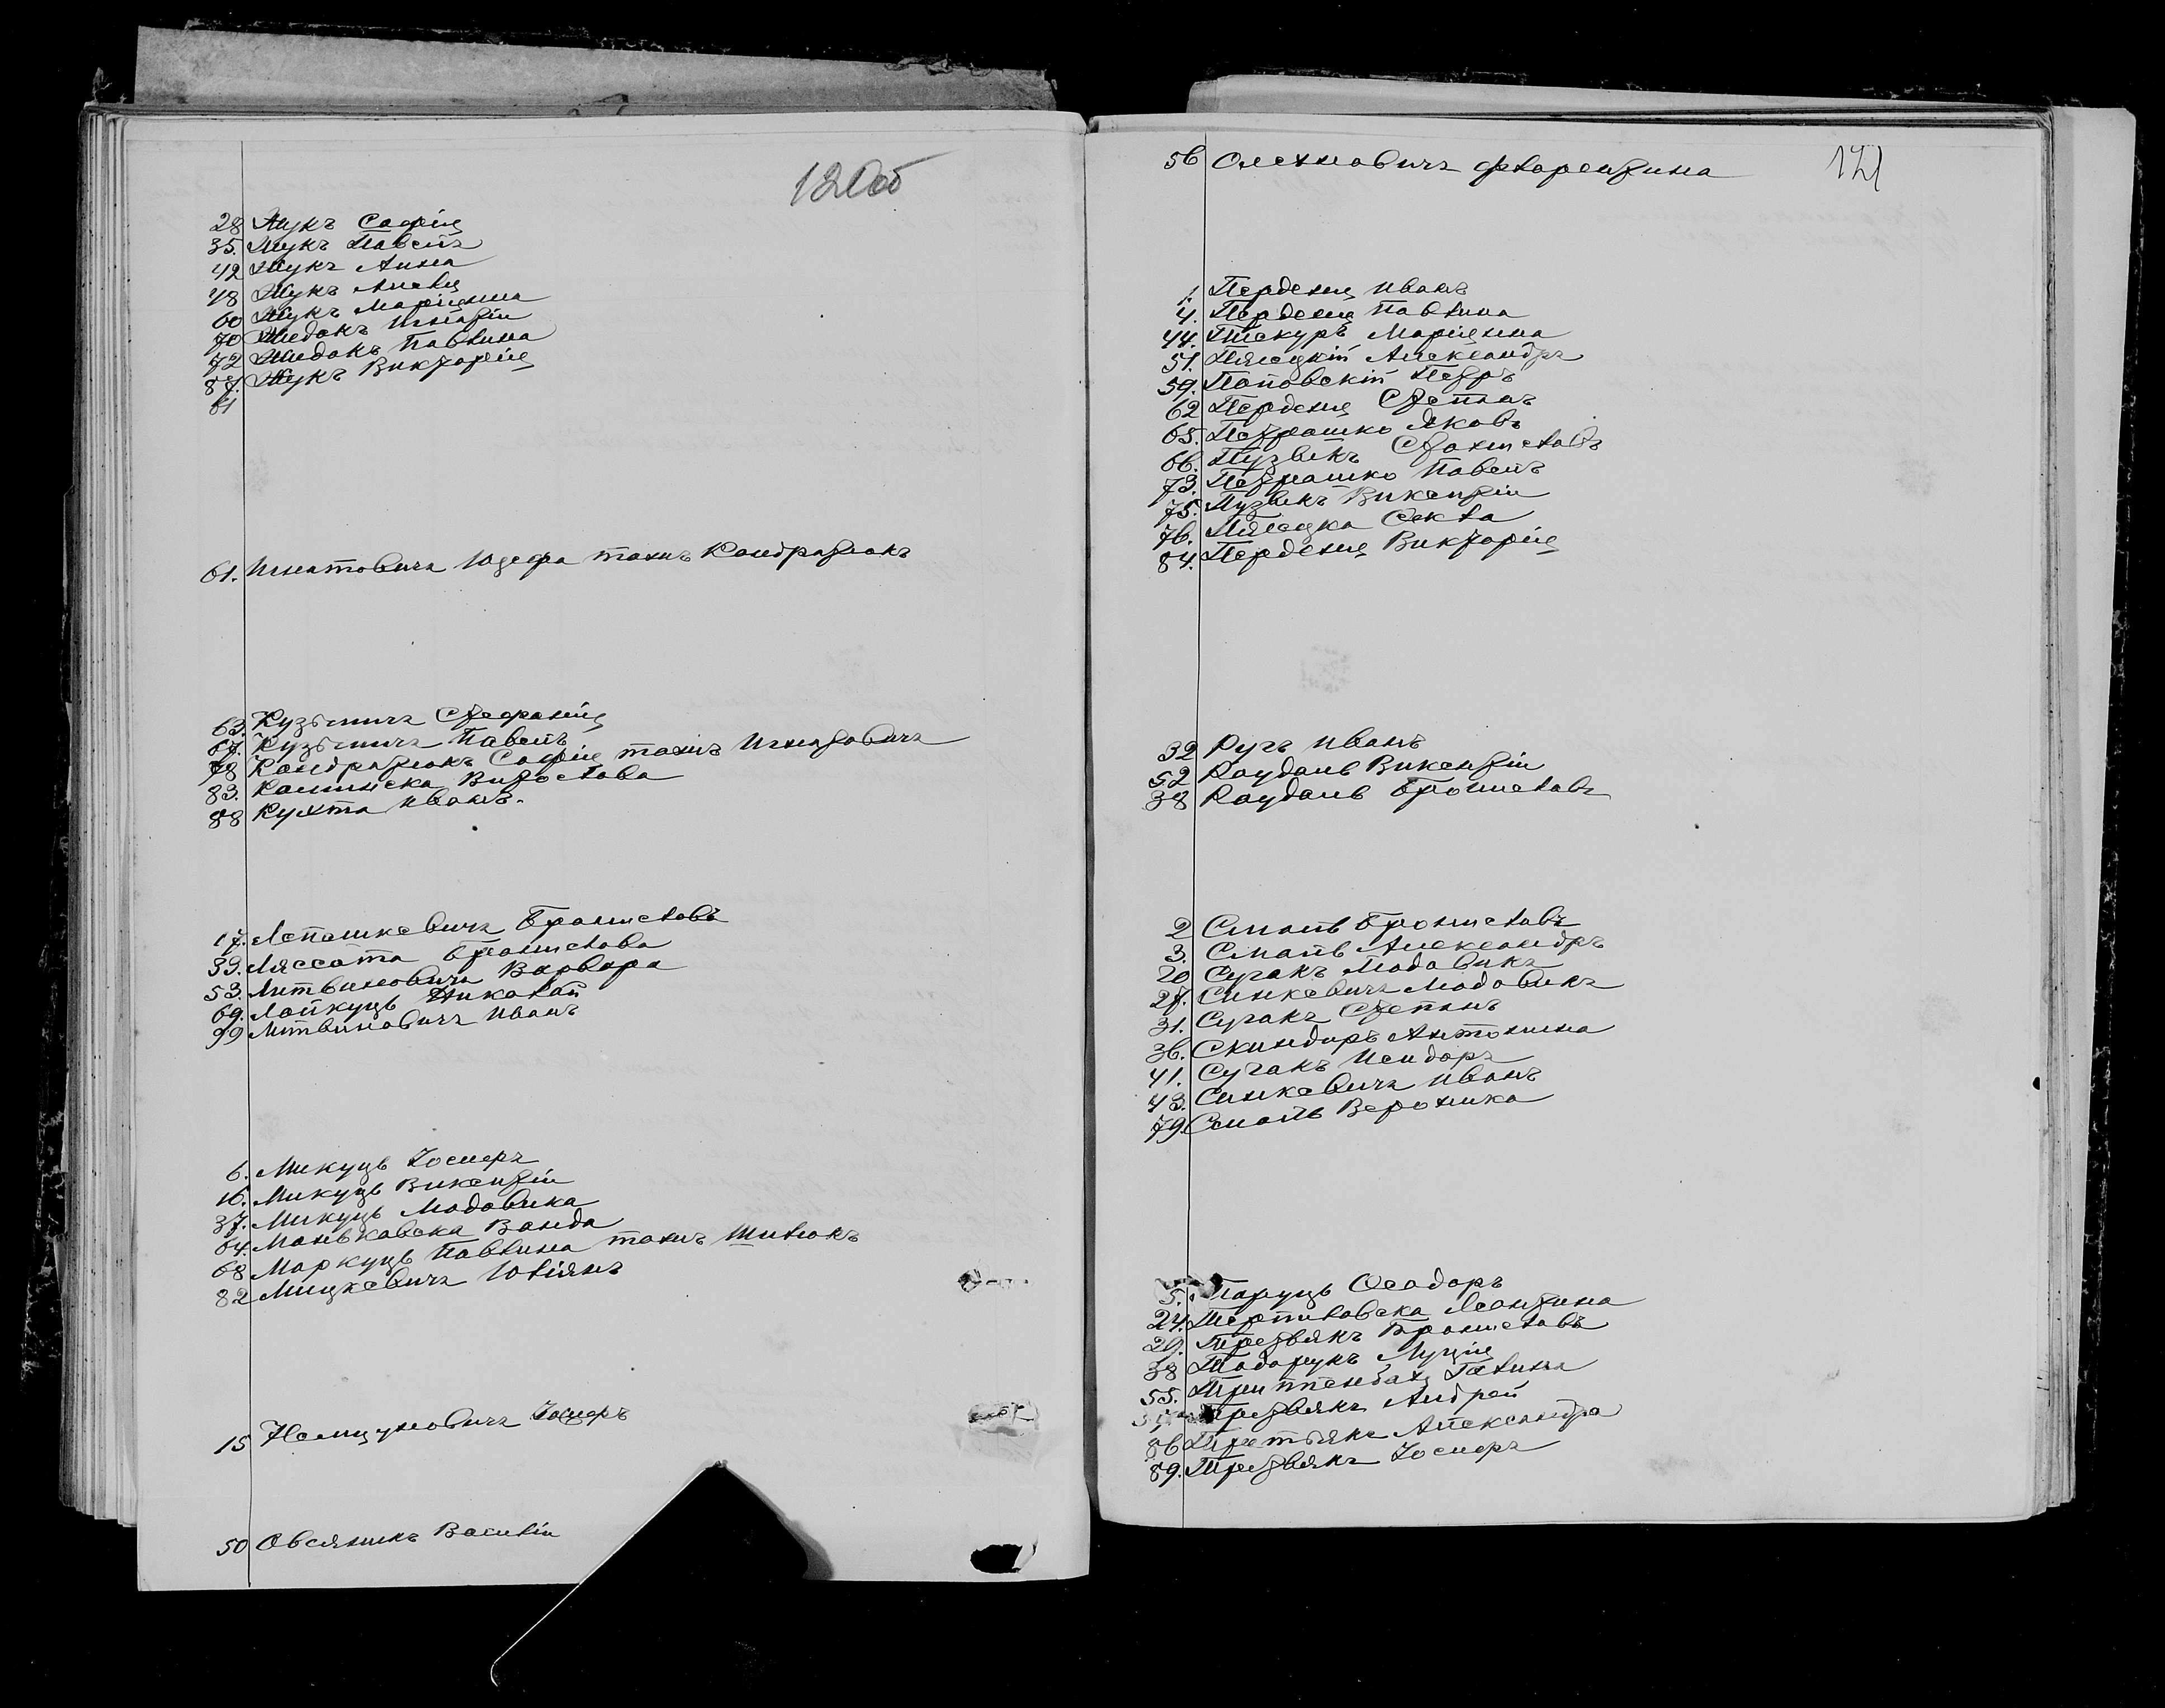 120об
28 Жукъ Софія
35. Жукъ Павелъ
42 Жукъ Анна
48 Жукъ
60 Жукъ Маріянна
70 Жидокъ Игнатій
72 Жидокъ Павлина
87. Жукъ Викторія
61
61. Игнатовичъ Юзефа тожъ Кондратюкъ
63. Кузьмичъ Стефанія
67. Кузьмичъ Павелъ
78 Кондратюкъ Софія тожъ Игнатовичъ
83. Каминска Витослава
88 Кухта Иванъ.
17. Лепашкевичъ Брониславъ
39. Лессота Бронислава
53. Литвиновичъ Варвара
69. Лайкуць Николай
99 Литвиновичъ Иванъ
6. Микуць Іосифъ
16. Микуць Викентій
37. Микуць Людовика
64. Маньковска Ванда
68 Маркуць Павлина тожъ Шилюкъ
82 Мицкевичъ Юліянъ
15 Немцуновичъ Іосифъ
50 Овсяникъ Василій
121
56 Олехновичъ Флорентина
1. Перденя Иванъ
4. Перденя Павлина
44. Пискуръ Маріянна
51. Пясецкій Александръ
59. Поповскій Петръ
62 Перденя Степанъ
65. Петрашко Яковъ
66. Пузыкъ Станиславъ
73. Петрашко Павелъ
75. Пузыкъ Викентій
76. Пясецка Фекла
84. Перденя Викторія
32 Ручъ Иванъ
52 Раудань Викентій
38 Раудань Брониславъ
2 Смаль Брониславъ
3. Смаль Александръ
20 Сугакъ Людовикъ
27. Синкевичъ Людовикъ
31. Сугакъ Степанъ
36. Скиндиръ Антонина
41. Сугакъ Исидоръ
43. Синкевичъ Иванъ
79. Смаль Вероника
5. Таруць Феодоръ
24. Терпиловска Леонтина
29. Третьякъ Брониславъ
38 Тодорукъ Луція
55. Галина
Третьякъ Андрей
86 Третьякъ Александра
89. Третьякъ Іосифъ